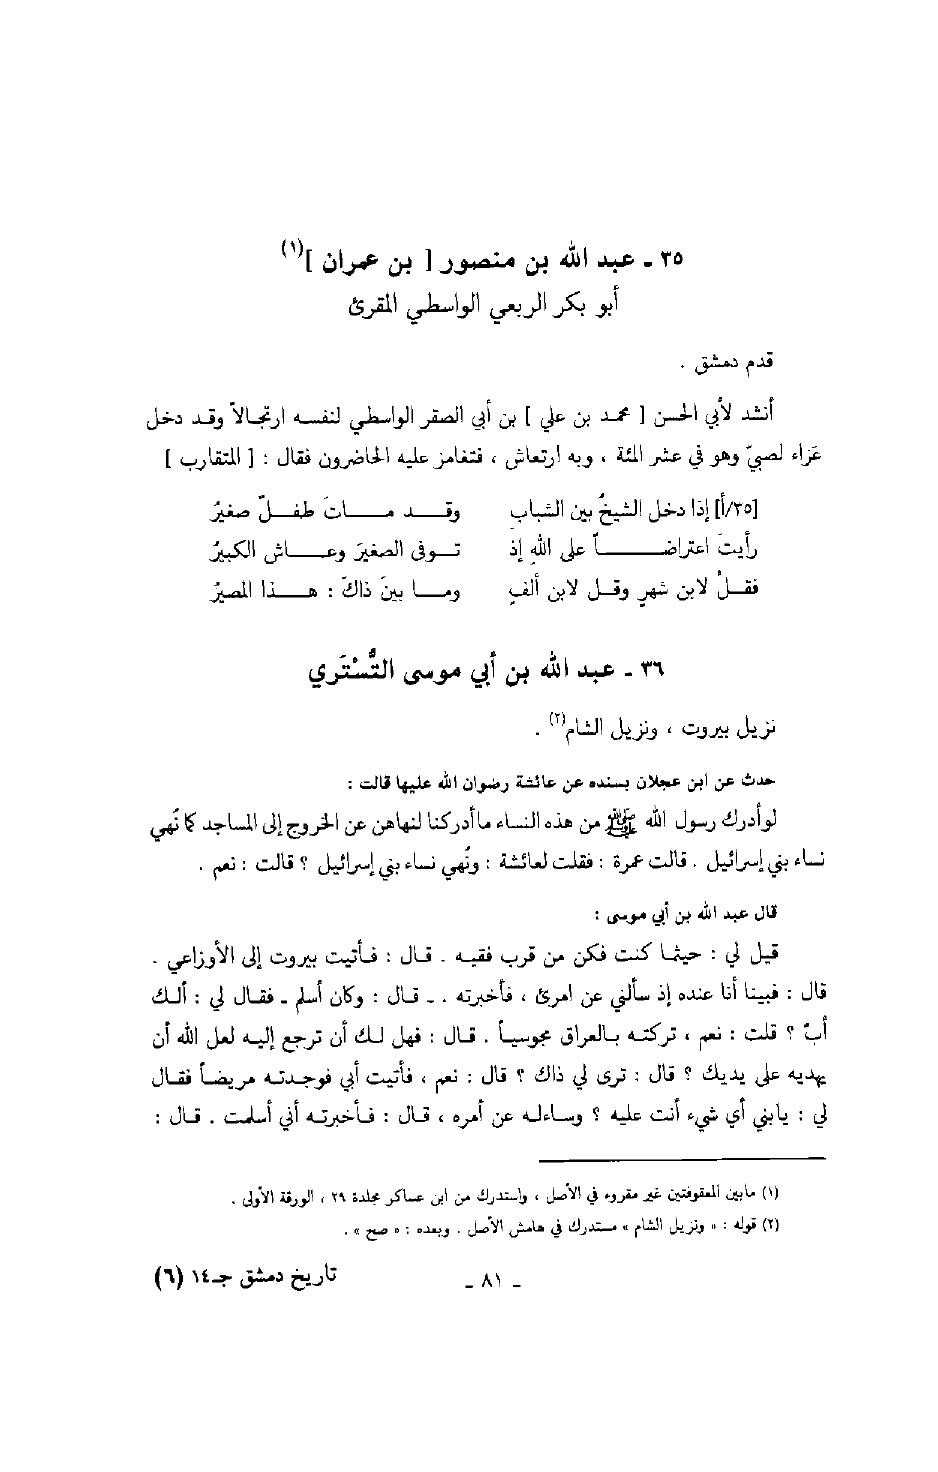 ٣٥ ـ عبد الله بن منصور [ بن عمران ](١)
أبو بكر الربعي الواسطي المقرئ
قدم دمشق .
أنشد لأبي الحسن [ محمد بن علي ] بن أبي الصقر الواسطي لنفسه ارتجالاً وقد دخل
عَزاء لصبيّ وهو في عشر المئة ، وبه ارتعاش ، فتغامز عليه الحاضرون فقال : [ المتقارب ]
[٣٥/أ] إذا دخل الشيخُ بين الشبابِ وقد ماتَ طفلٌ صغيرُ
رأيتَ اعتراضاً على اللهِ إذْ توفى الصغيرَ وعاش الكبيرُ
فقلْ لابن شهرٍ وقل لابن ألفٍ وما بينَ ذاكَ : هذا المصيرُ
٣٦ ـ عبد الله بن أبي موسى التُّسْتَري
نزيل بيروت ، ونزيل الشام(٢) .
حدث عن ابن عجلان بسنده عن عائشة رضوان الله عليها قالت :
لوأدرك رسول الله ﷺ من هذه النساء ماأدركنا لنهاهن عن الخروج إلى المساجد كما نُهي
نساء بني إسرائيل . قالت عمرة : فقلت لعائشة : ونُهي نساء بني إسرائيل ؟ قالت : نعم .
قال عبد الله بن أبي موسى :
قيل لي : حيثما كنت فكن من قرب فقيه . قال : فأتيت بيروت إلى الأوزاعي .
قال : فبينا أنا عنده إذ سألني عن امرئ ، فأخبرته .ـ قال : وكان أسلم ـ فقال لي : ألك
أبٌ ؟ قلت : نعم ، تركته بالعراق مجوسياً . قال : فهل لك أن ترجع إليه لعل الله أن
يهديه على يديك ؟ قال : ترى لي ذاك ؟ قال : نعم ، فأتيت أبي فوجدته مريضاً فقال
لي : يابني أي شيء أنت عليه ؟ وساءله عن أمره ، قال : فأخبرته أني أسلمت . قال :
(١) مابين المعقوفتين غير مقروء في الأصل ، واستدرك من ابن عساكر مجلدة ٢٩ ، الورقة الأولى .
(٢) قوله : « ونزيل الشام » مستدرك في هامش الأصل . وبعده : « صح » .
ـ ٨١ ـ تاريخ دمشق جـ١٤ (٦)